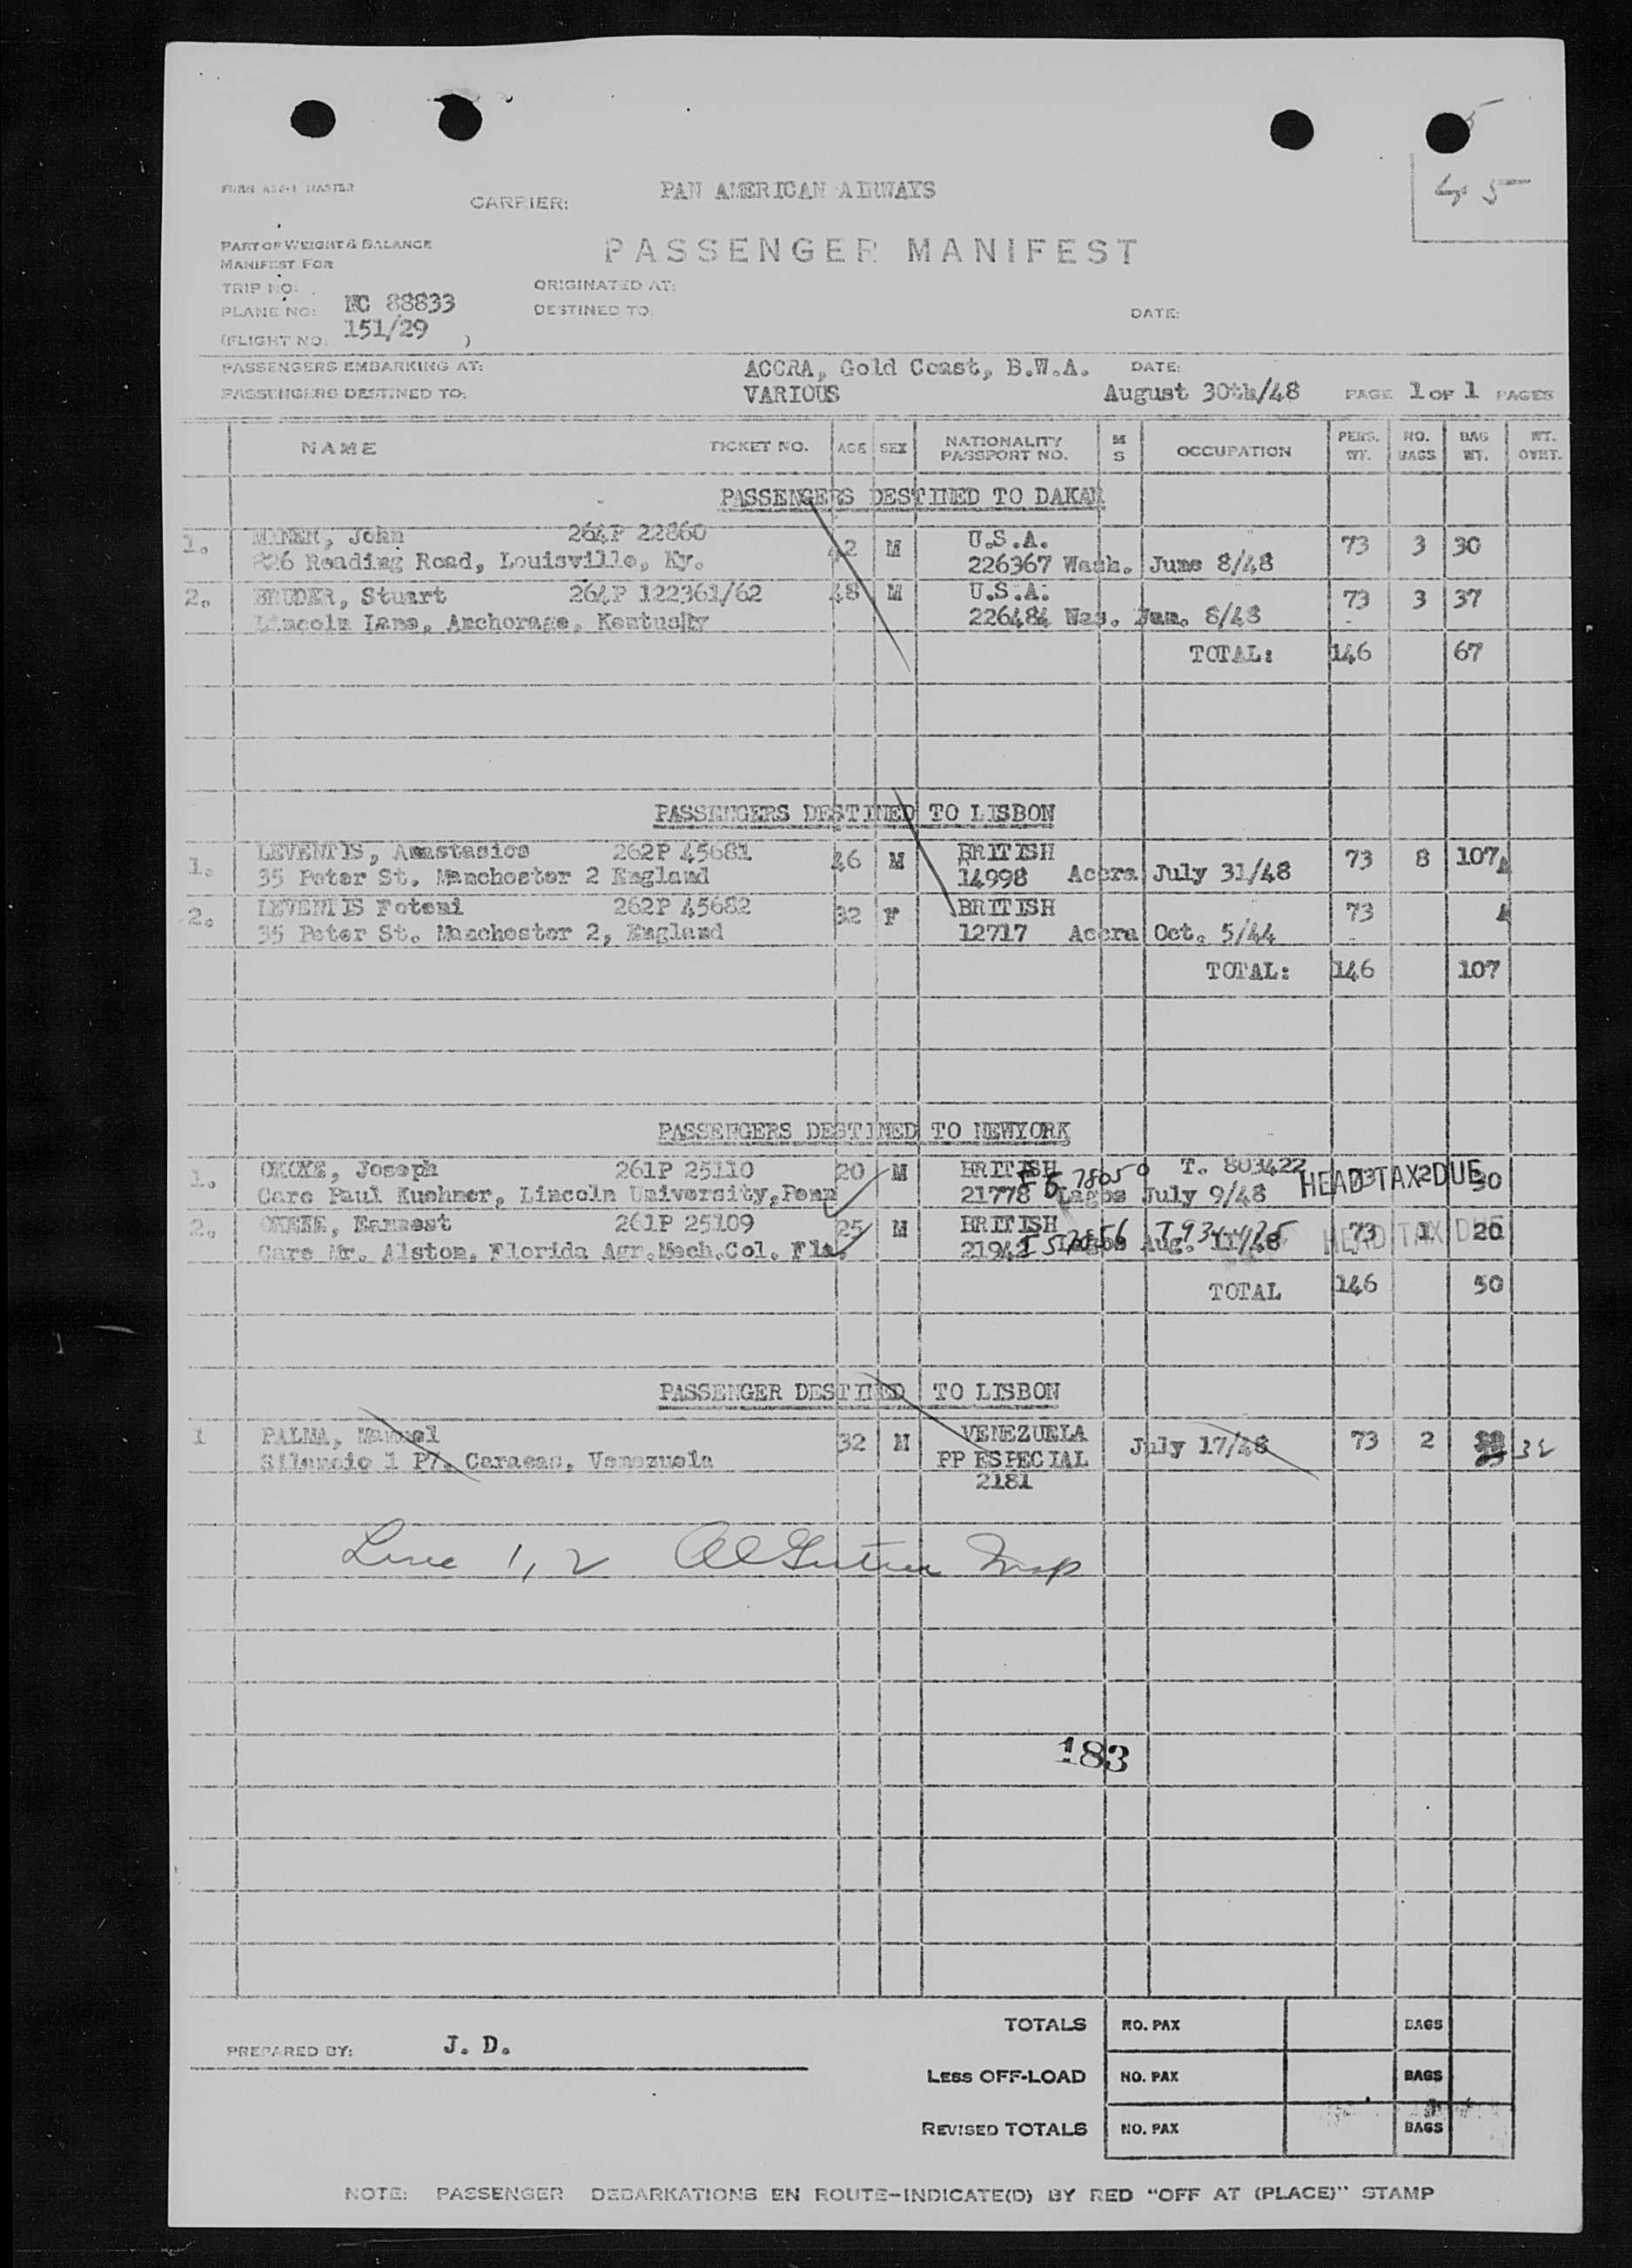 45
FORM A20-1 MASTER
CARRIER: PAN AMERICAN AIRWAYS
PART OF WEIGHT & BALANCE
MANIFEST FOR
PASSENGER MANIFEST
TRIP NO:
ORIGINATED AT:
PLANE NO: NC 88833
DESTINED TO:
DATE:
(FLIGHT NO: 151/29 )
PASSENGERS EMBARKING AT: ACCRA, Gold Coast, B.W.A. DATE:
PASSENGERS DESTINED TO: VARIOUS August 30th/48 PAGE 1 OF 1 PAGES
NAME TICKET NO. AGE SEX NATIONALITY PASSPORT NO. M S OCCUPATION PERS. WT. NO. BAGS BAG WT. WT. OVHT.
PASSENGERS DESTINED TO DAKAR
1. John 264P 22860 42 M U.S.A. 73 3 30
826 Reading Road, Louisville, Ky. 226367 Wash. June 8/48
2. BRUDER, Stuart 264P 122361/62 48 M U.S.A. 73 3 37
Lincoln Lane, Anchorage, Kentucky 226484 Was. Jun. 8/48
TOTAL: 146 67
PASSENGERS DESTINED TO LISBON
1. LEVENTIS, Anastasios 262P 45681 46 M BRITISH 73 8 107
35 Peter St. Manchester 2 England 14998 Accra July 31/48
2. LEVENTIS Foteni 262P 45682 32 F BRITISH 73
35 Peter St. Manchester 2, England 12717 Accra Oct. 5/44
TOTAL: 146 107
PASSENGERS DESTINED TO NEWYORK
1. OKOYE, Joseph 261P 25110 20 M BRITISH 78050 T. 803422 HEAD TAX DUE 30
Care Paul Kuehner, Lincoln University, Penn 21778 Lagos July 9/48
2. 261P 25109 25 M BRITISH HEAD TAX DUE 73 1 20
Care Mr. Alston, Florida Agr.Mech.Col. Fla. Lagos Aug. 11/48
TOTAL 146 50
PASSENGER DESTINED TO LISBON
1 PALMA, Manuel 32 M VENEZUELA July 17/48 73 2 32
Silencio 1 P/. Caracas, Venezuela PP ESPECIAL
2181
Line 1, 2 Insp
183
PREPARED BY: J. D.
TOTALS NO. PAX BAGS
LESS OFF-LOAD NO. PAX BAGS
REVISED TOTALS NO. PAX BAGS
NOTE: PASSENGER DEBARKATIONS EN ROUTE-INDICATE(D) BY RED "OFF AT (PLACE)" STAMP